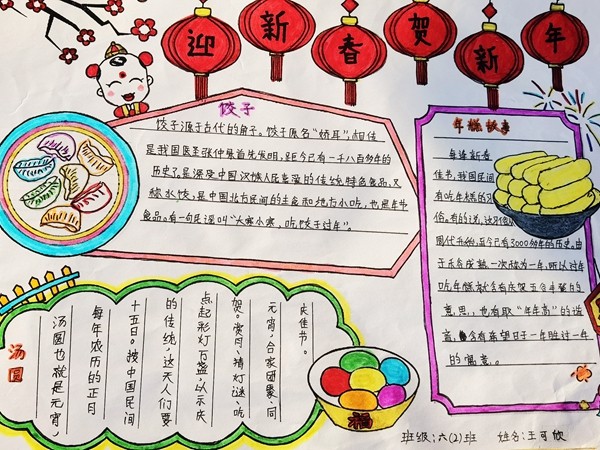 迎新春贺新年
饺子
饺子源于古代的角子。饺子原名"娇耳",相传
是我国医圣张仲景首先发明,距今已有一千八百多年的
历史了。是深受中国汉族人民喜爱的传统特色食品,又
称水饺,是中国北方民间的主食和地方小吃,也是年节
食品。有一句民谣叫"大寒小寒,吃饺子过年"。
年糕故事
每逢新春
佳节,我国民间
有吃年糕的习
俗。有的说,这习俗
周代开始,至今已有3000多年的历史。由
于禾谷成熟一次称为一年,所以过年
吃年糕就含有庆贺五谷丰登的
意思,也有取"年年高"的谐
音,含有希望日子一年胜过一年
的寓意。
汤圆
汤圆也就是元宵,
每年农历的正月
十五日。按中国民间
的传统,这天人们要
点起彩灯万盏,以示庆
贺。赏月、猜灯谜、吃
元宵,合家团聚、同
庆佳节。
福
班级:六(2)班 姓名:王可欣